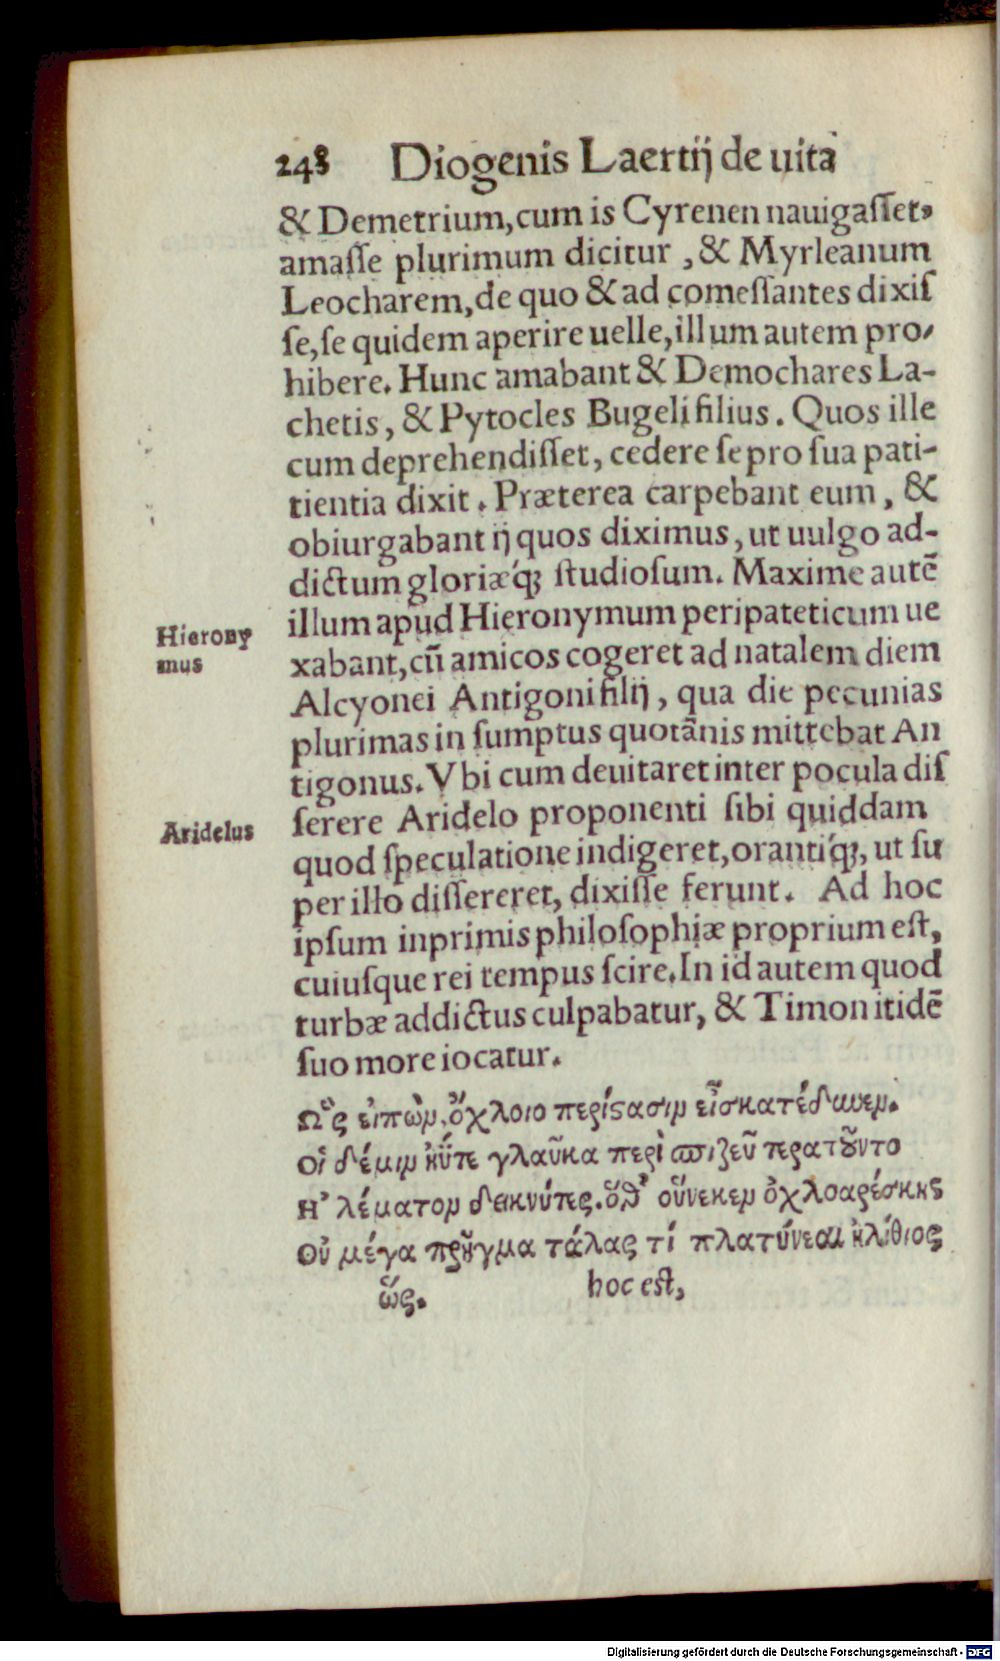 248 Diogenis Laertij de uita
& Demetrium, cum is Cyrenen nauigasſet,
amaſſe plurimum dicitur, & Myrleanum
Leocharem, de quo & ad comeſſantes dixiſ
ſe, ſe quidem aperire uelle, illum autem pro-
hibere. Hunc amabant & Demochares La-
chetis, & Pytocles Bugeli filius. Quos ille
cum deprehendiſſet, cedere ſe pro ſua pati-
tientia dixit. Præterea carpebant eum, &
obiurgabant ij quos diximus, ut uulgo ad-
dictum gloriæq́ꝫ ſtudioſum. Maxime autē
illum apud Hieronymum peripateticum ue
Hierony
mus
xabant, cū amicos cogeret ad natalem diem
Alcyonei Antigoni filij, qua die pecunias
plurimas in ſumptus quotānis mittebat An
tigonus. Vbi cum deuitaret inter pocula diſ
ſerere Aridelo proponenti ſibi quiddam
Aridelus
quod ſpeculatione indigeret, orantiq́ꝫ, ut ſu
per illo diſſereret, dixiſſe ferunt. Ad hoc
ipſum inprimis philoſophiæ proprium eſt,
cuiuſque rei tempus ſcire. In id autem quod
turbæ addictus culpabatur, & Timon itidē
ſuo more iocatur.
Ὣς εἰπὼν, ὄχλοιο περίϛασιν εἶσκατέδυνεν.
Οἱ δέμιν ἠΰτε γλαῦκα περὶ σπιζεῦ περατοῦντο
Η᾽ λέματον δεικνύτες. ὅθ᾽ οὕνεκεν ὀχλοαρέσκης
Οὐ μέγα πρῆγμα τάλας τί πλατύνεαι ἠλίθιος
ὥς. hoc eſt,
Digitalisierung gefördert durch die Deutsche Forschungsgemeinschaft - DFG